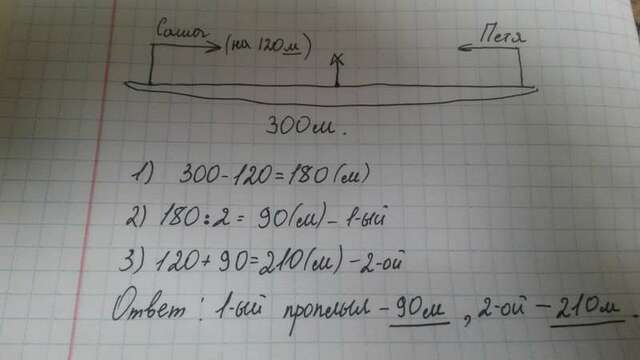 Саша (на 120м) Петя
300м.
1) 300-120=180(м)
2) 180:2= 90(м)-1-ый
3) 120+90=210(м)-2-ой
Ответ: 1-ый проплыл-90м, 2-ой-210м.